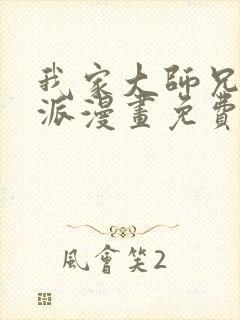 我家大師兄
派漫畫免費
風會笑2